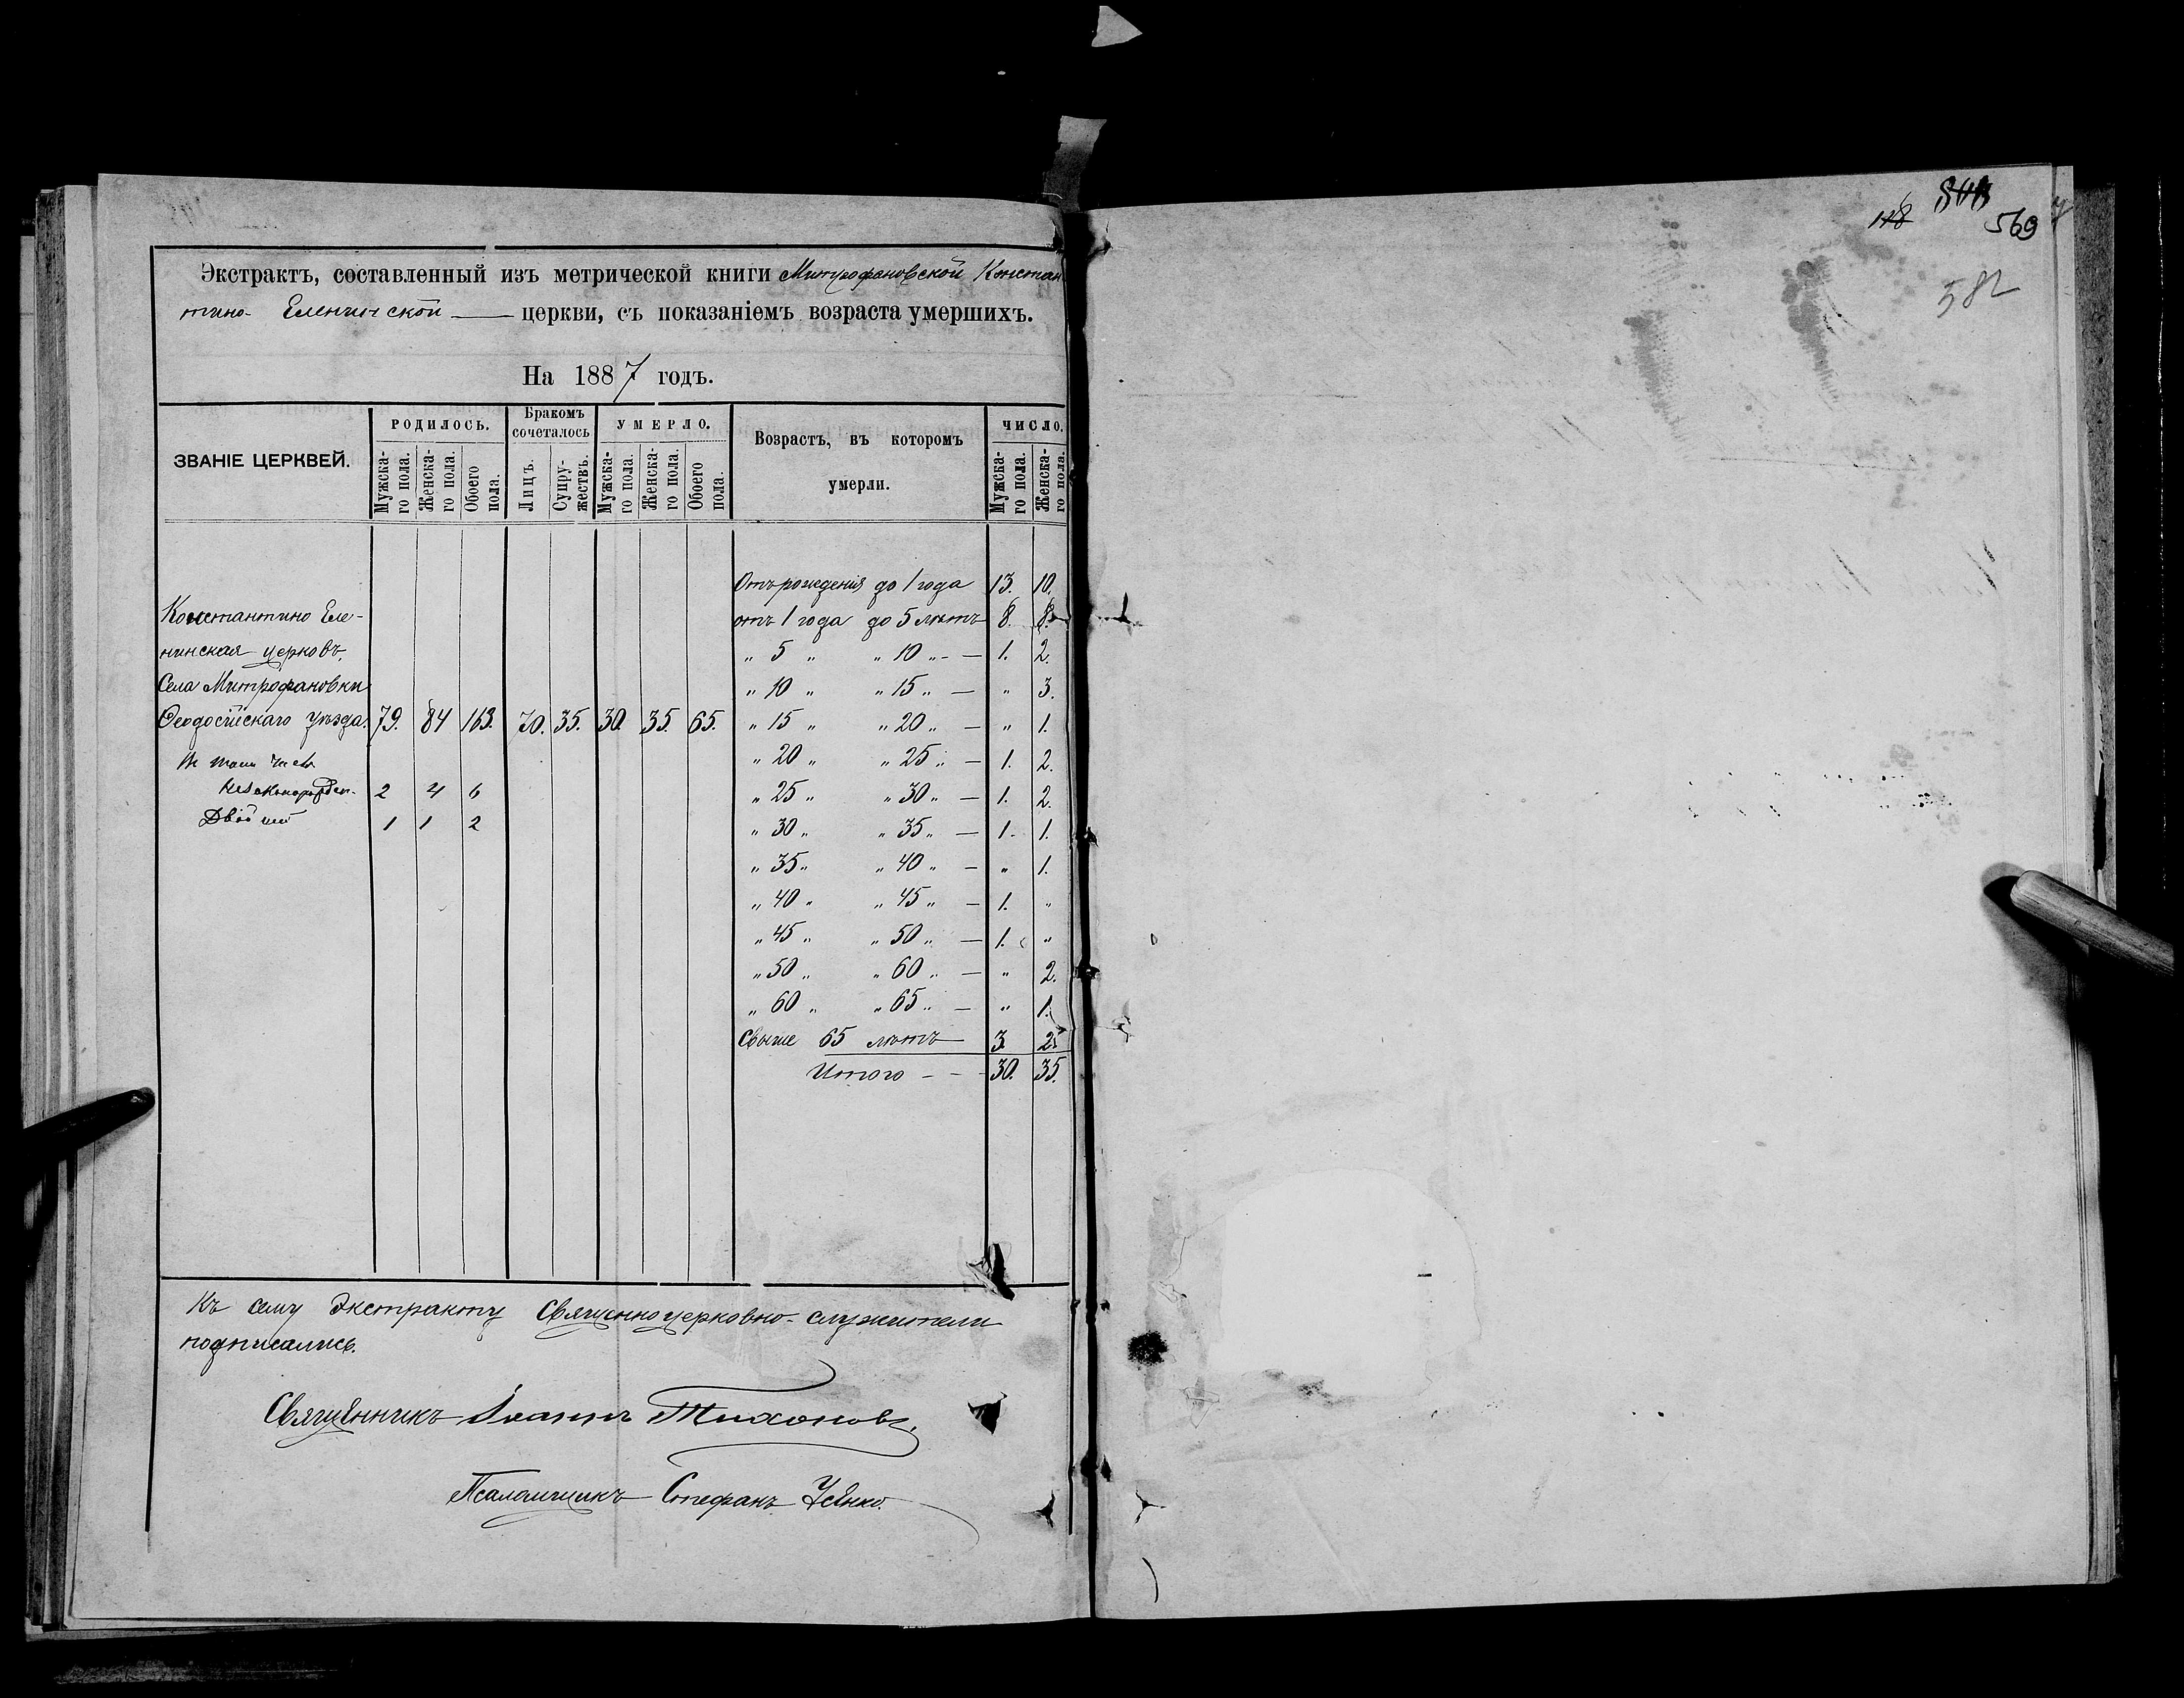 Экстрактъ, составленный изъ метрической книги Митрофановской Констан
тино- Еленинской — церкви, съ показаніемъ возраста умершихъ.
На 1887 годъ.
ЗВАНІЕ ЦЕРКВЕЙ.
РОДИЛОСЬ.
Мужска-
го пола.
Женска-
го пола.
Обоего
пола.
Бракомъ
сочеталось
Лицъ.
Супру-
жествъ.
УМЕРЛО.
Мужска-
го пола.
Женска-
го пола.
Обоего
пола.
Возрастъ, въ которомъ
умерли.
ЧИСЛО.
Мужска-
го пола.
Женска-
го пола.
Отъ рожденія до 1 года 13. 10.
Константино Еле- отъ 1 года до 5 лѣтъ 8. 8.
нинская церковь, „ 5 „ „ 10 „ — 1. 2.
Села Митрофановки „ 10 „ „ 15 „ — „ 3.
Ѳеодосійскаго уѣзда. 79. 84 163. 70. 35. 30. 35. 65. „ 15 „ „ 20 „ — „ 1.
Въ томъ числѣ „ 20 „ „ 25 „ — 1. 2.
2 4 6 „ 25 „ „ 30 „ — 1. 2.
Двойней 1 1 2 „ 30 „ „ 35 „ — 1. 1.
„ 35 „ „ 40 „ — „ 1.
„ 40 „ „ 45 „ — 1. „
„ 45 „ „ 50 „ — 1. „
„ 50 „ „ 60 „ — „ 2.
„ 60 „ „ 65 „ — „ 1.
Свыше 65 лѣтъ 3. 2.
Итого - - - 30. 35.
Къ сему Экстракту Священноцерковно-служители
подписались.
Священникъ Іоаннъ Тихоновъ.
Псаломщикъ Стефанъ Усенко.
118
569
582